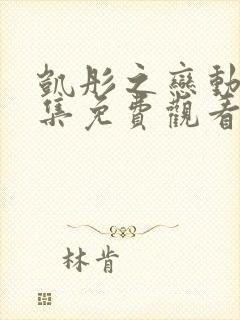 凱彤之戀動
集免費觀看
林肯